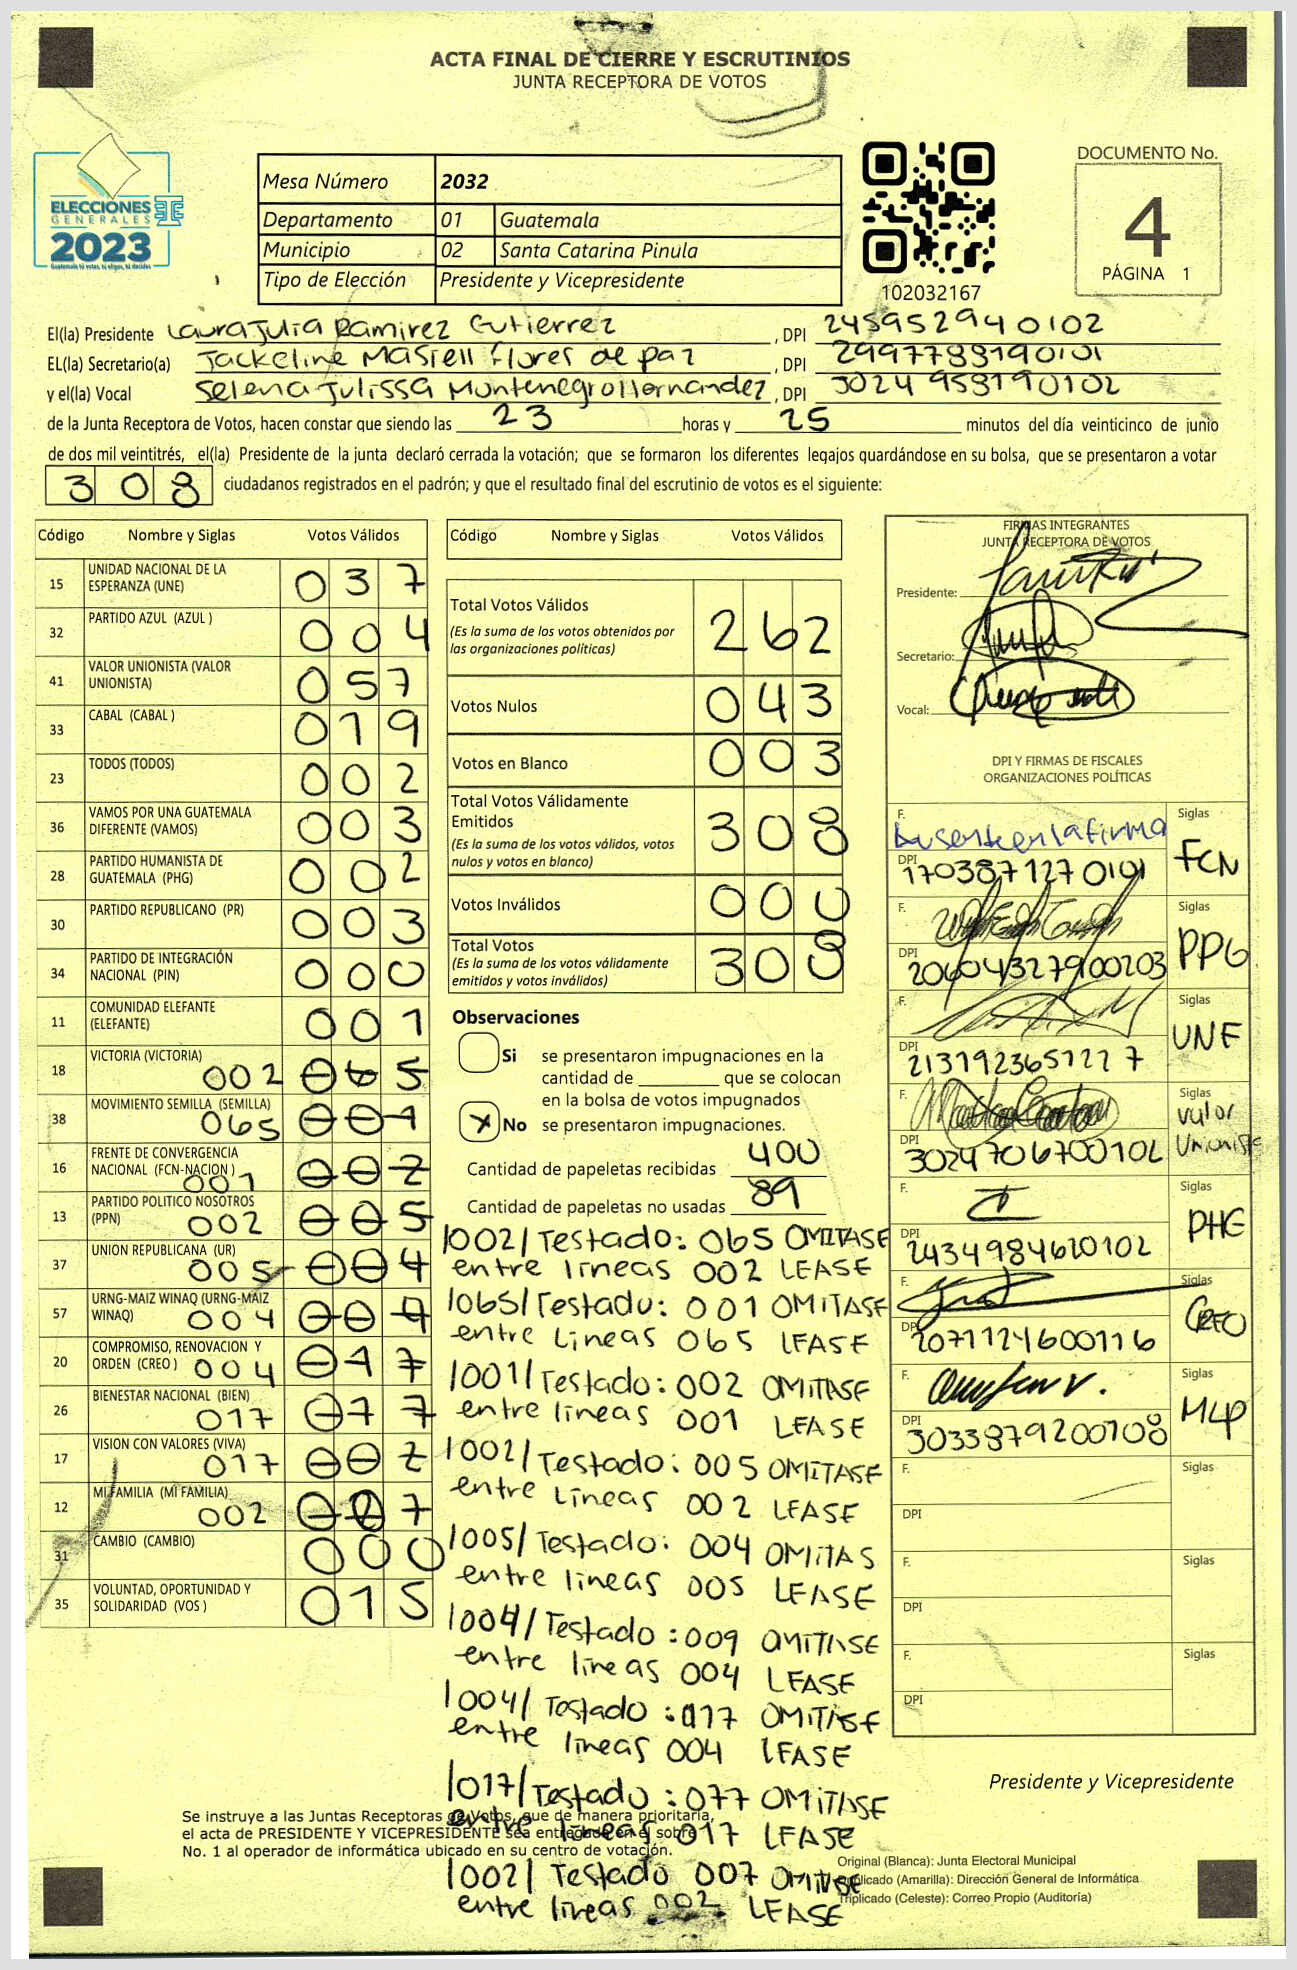 ACTA FINAL DE CIERRE Y ESCRUTINIOS
JUNTA RECEPTORA DE VOTOS
ELECCIONES
GENERALES
2023
Guatemala tú votas, tú eliges, tú decides
Mesa Número 2032
Departamento 01 Guatemala
Municipio 02 Santa Catarina Pinula
Tipo de Elección Presidente y Vicepresidente
102032167
DOCUMENTO No.
4
PÁGINA 1
El(la) Presidente Laura Julia Ramirez Gutierrez , DPI 245952940102
EL(la) Secretario(a) Jackeline Mariell flores de paz , DPI 2997788190101
y el(la) Vocal Selena Julissa Montenegro Hernandez , DPI 3024958190102
de la Junta Receptora de Votos, hacen constar que siendo las 23 horas y 25 minutos del día veinticinco de junio
de dos mil veintitrés, el(la) Presidente de la junta declaró cerrada la votación; que se formaron los diferentes legajos guardándose en su bolsa, que se presentaron a votar
308 ciudadanos registrados en el padrón; y que el resultado final del escrutinio de votos es el siguiente:
Código Nombre y Siglas Votos Válidos
15 UNIDAD NACIONAL DE LA ESPERANZA (UNE) 037
32 PARTIDO AZUL (AZUL ) 004
41 VALOR UNIONISTA (VALOR UNIONISTA) 057
33 CABAL (CABAL ) 019
23 TODOS (TODOS) 002
36 VAMOS POR UNA GUATEMALA DIFERENTE (VAMOS) 003
28 PARTIDO HUMANISTA DE GUATEMALA (PHG) 002
30 PARTIDO REPUBLICANO (PR) 003
34 PARTIDO DE INTEGRACIÓN NACIONAL (PIN) 000
11 COMUNIDAD ELEFANTE (ELEFANTE) 001
18 VICTORIA (VICTORIA) 002 065
38 MOVIMIENTO SEMILLA (SEMILLA) 065 001
16 FRENTE DE CONVERGENCIA NACIONAL (FCN-NACION ) 001 002
13 PARTIDO POLITICO NOSOTROS (PPN) 002 005
37 UNION REPUBLICANA (UR) 005 004
57 URNG-MAIZ WINAQ (URNG-MAIZ WINAQ) 004
20 COMPROMISO, RENOVACION Y ORDEN (CREO ) 004 017
26 BIENESTAR NACIONAL (BIEN) 017 077
17 VISION CON VALORES (VIVA) 017 002
12 MI FAMILIA (MI FAMILIA) 002 007
31 CAMBIO (CAMBIO) 000
35 VOLUNTAD, OPORTUNIDAD Y SOLIDARIDAD (VOS ) 015
Código Nombre y Siglas Votos Válidos
Total Votos Válidos 262
(Es la suma de los votos obtenidos por las organizaciones politicas)
Votos Nulos 043
Votos en Blanco 003
Total Votos Válidamente Emitidos 308
(Es la suma de los votos válidos, votos nulos y votos en blanco)
Votos Inválidos 000
Total Votos 308
(Es la suma de los votos válidamente emitidos y votos inválidos)
Observaciones
Si se presentaron impugnaciones en la
cantidad de ________ que se colocan
en la bolsa de votos impugnados
X No se presentaron impugnaciones.
Cantidad de papeletas recibidas 400
Cantidad de papeletas no usadas 89
/002/ Testado: 065 OMITASE
entre lineas 002 LEASE
/065/ Testado: 001 OMITASE
entre Lineas 065 LEASE
/001/ Testado: 002 OMITASE
entre lineas 001 LEASE
/002/ Testado: 005 OMITASE
entre Lineas 002 LEASE
/005/ Testado: 004 OMITAS
entre lineas 005 LEASE
/004/ Testado: 009 OMITASE
entre lineas 004 LEASE
/004/ Testado: 017 OMITASE
entre lineas 004 LEASE
/017/ Testado: 077 OMITASE
entre lineas 017 LEASE
/002/ Testado 007 OMITASE
entre lineas 002 LEASE
FIRMAS INTEGRANTES
JUNTA RECEPTORA DE VOTOS
Presidente:
Secretario:
Vocal:
DPI Y FIRMAS DE FISCALES
ORGANIZACIONES POLÍTICAS
F. Ausente en la firma Siglas
DPI 1703871270101 FCN
F. Siglas
DPI 2060432790203 PPG
F. Siglas
DPI 2131923651227 UNE
F. Siglas
DPI 3024706700102 Valor Unionista
F. Siglas
DPI 2434984620102 PHG
F. Siglas
DPI 2071124600116 CREO
F. Siglas
DPI 3033879200108 MLP
F. Siglas
DPI
F. Siglas
DPI
F. Siglas
DPI
Presidente y Vicepresidente
Se instruye a las Juntas Receptoras de Votos, que de manera prioritaria,
el acta de PRESIDENTE Y VICEPRESIDENTE sea entregada en el sobre
No. 1 al operador de informática ubicado en su centro de votación.
Original (Blanca): Junta Electoral Municipal
Duplicado (Amarilla): Dirección General de Informática
Triplicado (Celeste): Correo Propio (Auditoría)